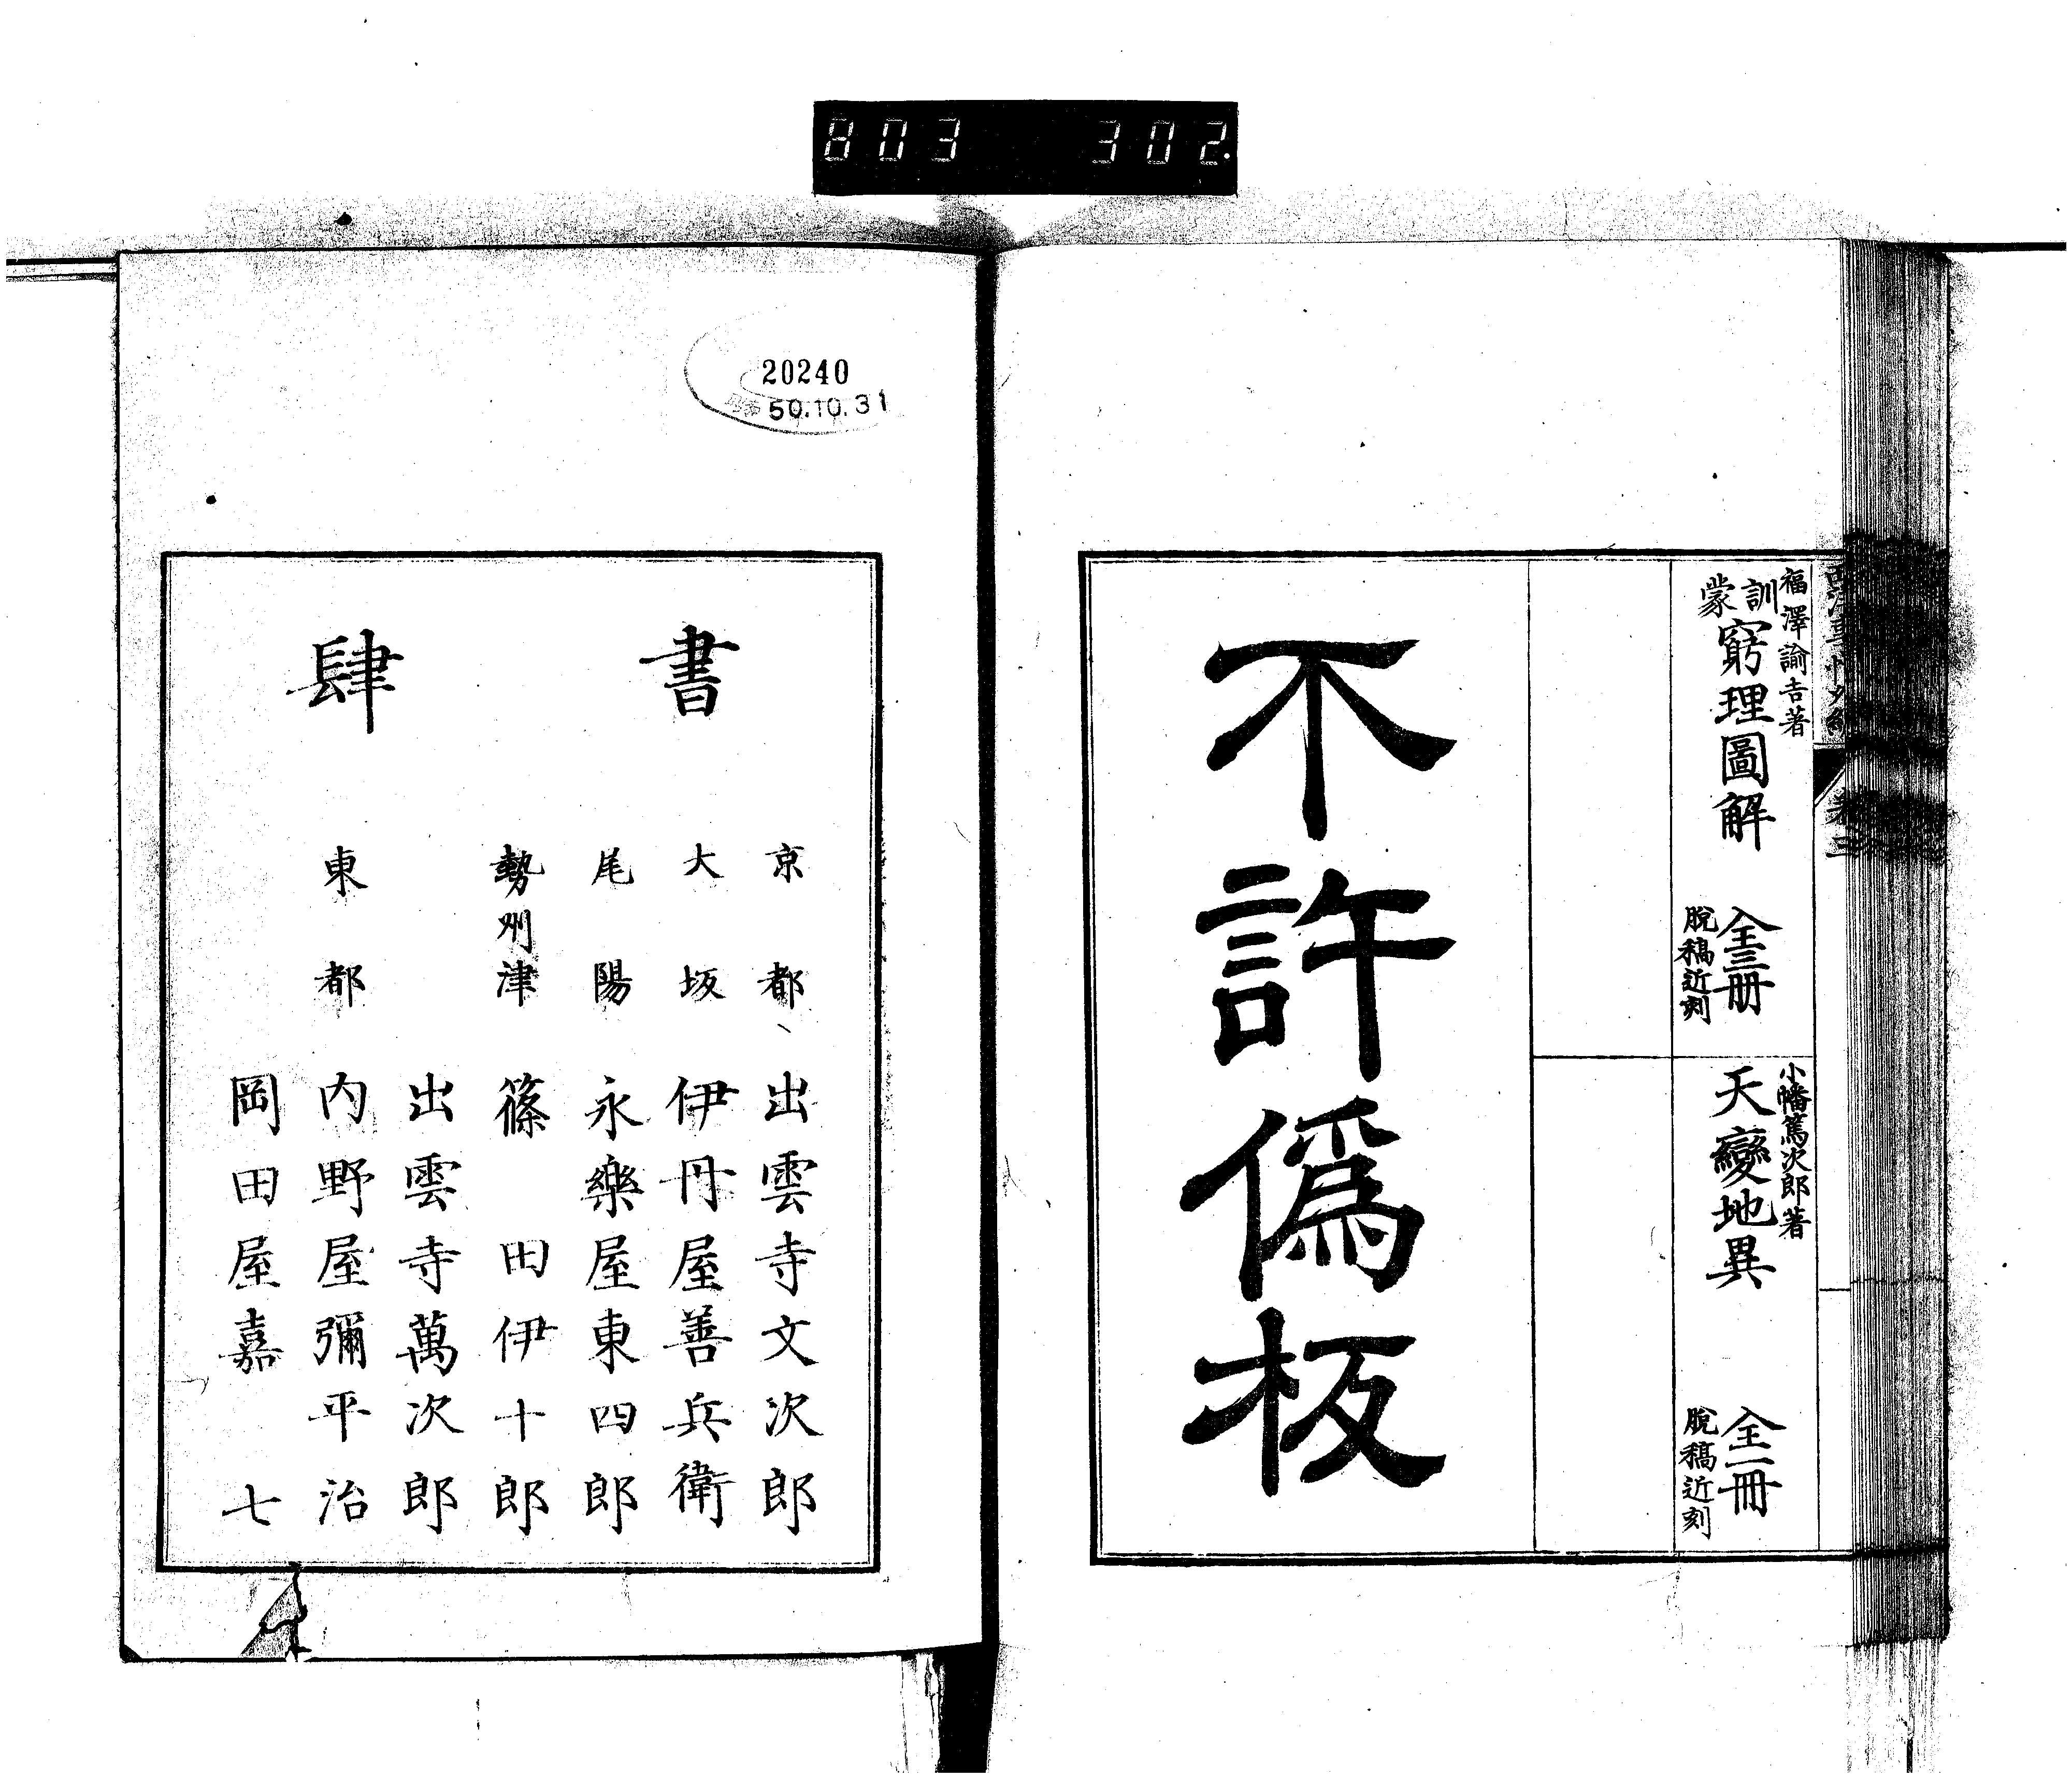 803 302.
福澤諭吉著
訓蒙窮理圖解 全三册
脫稿近刻
小幡篤次郎著
天變地異 全一冊
脫稿近刻
不許偽板
20240
50.10.31
書肆
京都 出雲寺文次郎
大坂 伊丹屋善兵衛
尾陽 永樂屋東四郎
勢州津 篠田伊十郎
東都 出雲寺萬次郎
内野屋彌平治
岡田屋嘉七